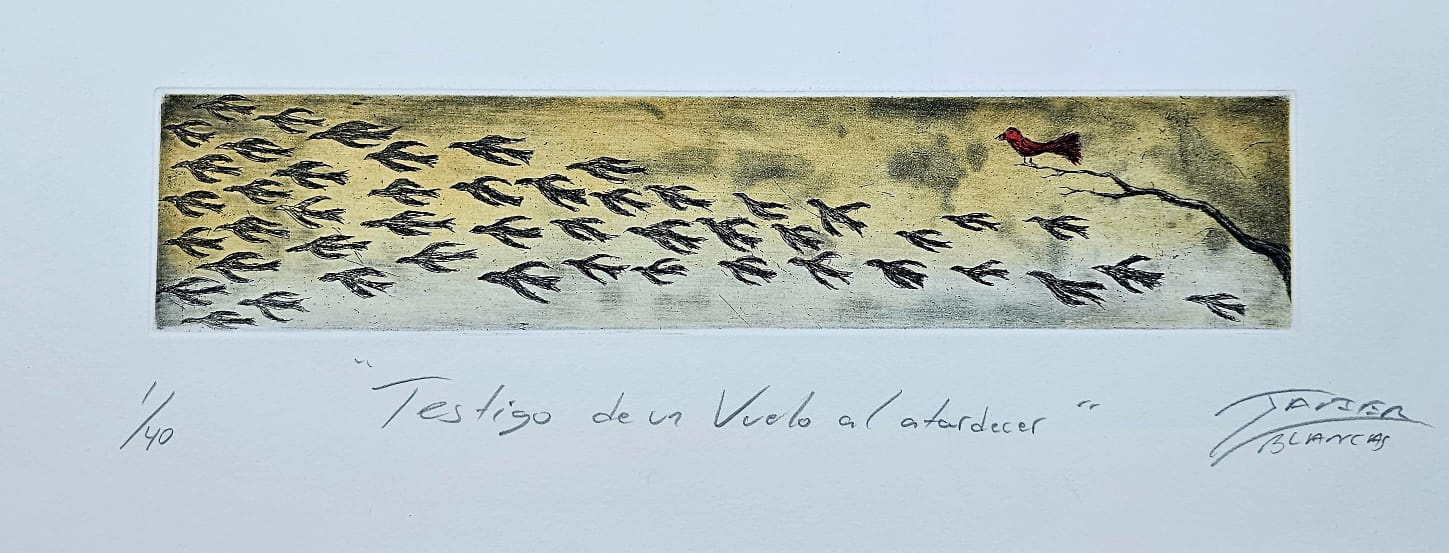 1/40
"Testigo de un Vuelo al atardecer"
JAVIER
BLANCAS